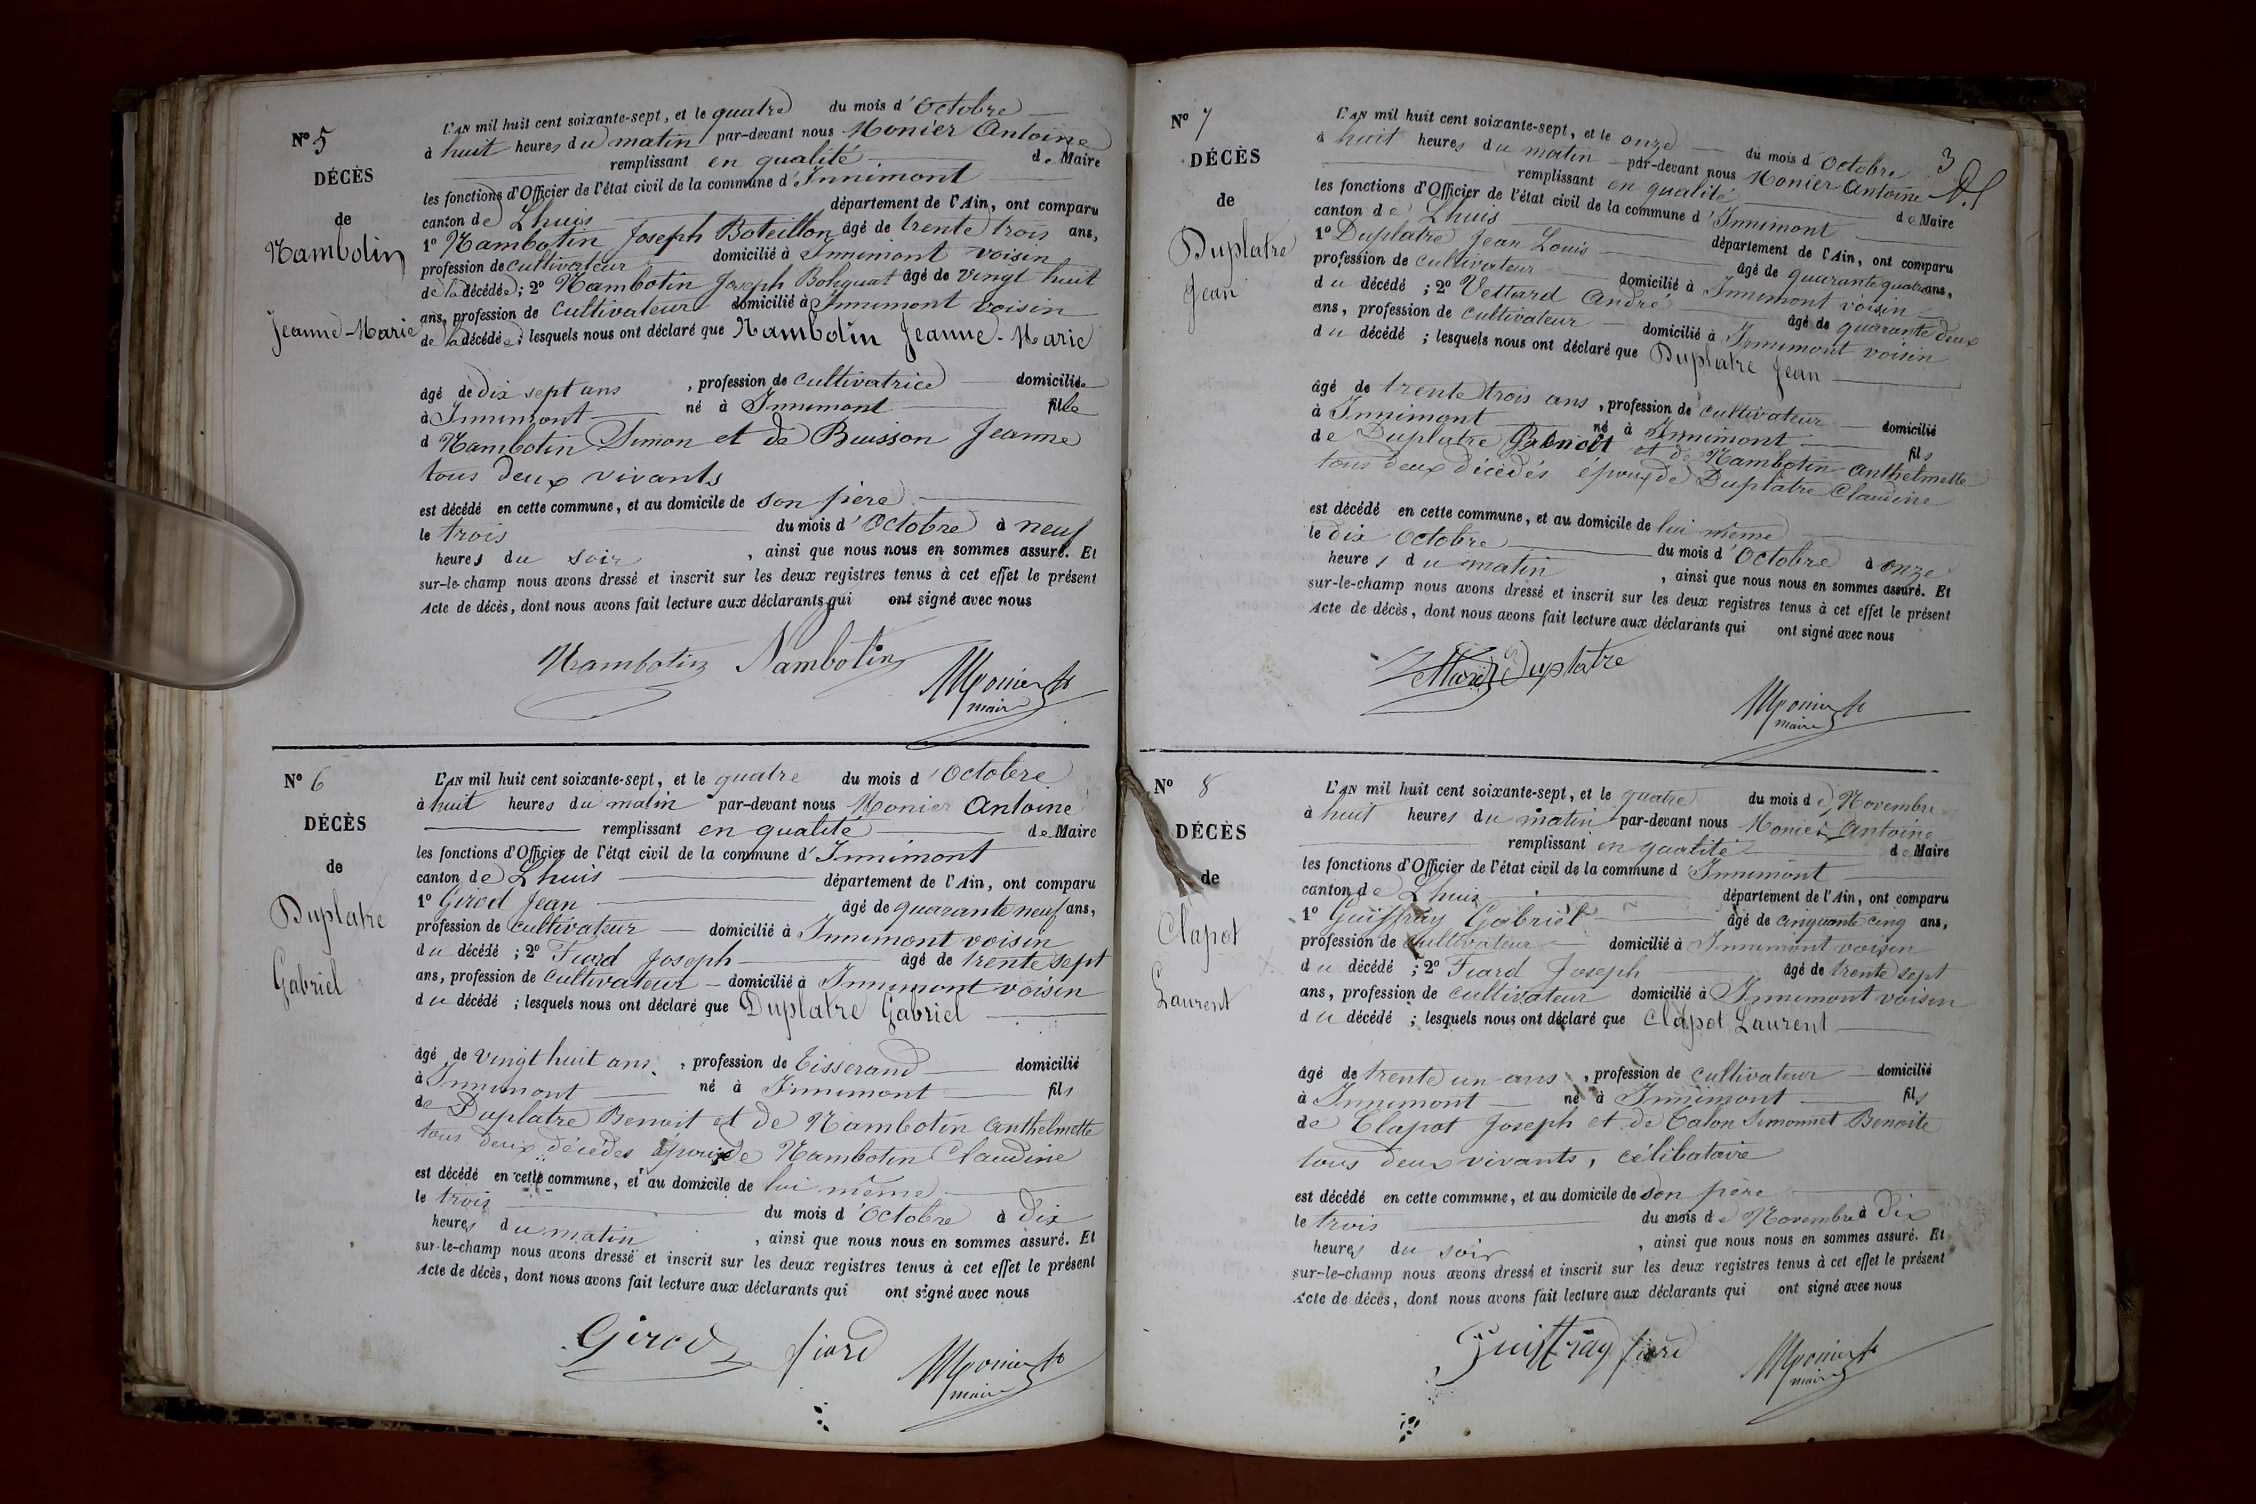 N° 5
DÉCÈS
de
Nambotin
Jeanne-Marie
L'AN mil huit cent soixante-sept, et le quatre du mois d'Octobre
à huit heures du matin par-devant nous Monier Antoine
remplissant en qualité de Maire
les fonctions d'Officier de l'état civil de la commune d'Innimont
canton de Lhuis département de l'Ain, ont comparu
1° Nambotin Joseph Boteillon âgé de trente trois ans,
profession de cultivateur domicilié à Innimont voisin
de la décédée; 2° Nambotin Joseph Bohquat âgé de vingt huit
ans, profession de cultivateur domicilié à Innimont voisin
de la décédée; lesquels nous ont déclaré que Nambotin Jeanne-Marie
âgé de dix sept ans, profession de cultivatrice domiciliée
à Innimont né à Innimont fille
d Nambotin Simon et de Buisson Jeanne
tous deux vivants
est décédé en cette commune, et au domicile de son père
le trois du mois d'Octobre à neuf
heures du soir, ainsi que nous nous en sommes assuré. Et
sur-le-champ nous avons dressé et inscrit sur les deux registres tenus à cet effet le présent
Acte de décès, dont nous avons fait lecture aux déclarants qui ont signé avec nous
Nambotin Nambotin Monier
maire
N° 6
DÉCÈS
de
Duplatre
Gabriel
L'AN mil huit cent soixante-sept, et le quatre du mois d'Octobre
à huit heures du matin par-devant nous Monier Antoine
remplissant en qualité de Maire
les fonctions d'Officier de l'état civil de la commune d'Innimont
canton de Lhuis département de l'Ain, ont comparu
1° Girod Jean âgé de quarante neuf ans,
profession de cultivateur domicilié à Innimont voisin
du décédé; 2° Fiard Joseph âgé de trente sept
ans, profession de cultivateur domicilié à Innimont voisin
du décédé; lesquels nous ont déclaré que Duplatre Gabriel
âgé de vingt huit ans, profession de tisserand domicilié
à Innimont né à Innimont fils
de Duplatre Benoit et de Nambotin Anthelmette
tous deux décédés époux de Nambotin Claudine
est décédé en cette commune, et au domicile de lui même
le trois du mois d'Octobre à dix
heures du matin, ainsi que nous nous en sommes assuré. Et
sur-le-champ nous avons dressé et inscrit sur les deux registres tenus à cet effet le présent
Acte de décès, dont nous avons fait lecture aux déclarants qui ont signé avec nous
Girod fiard Monier
maire
3
N° 7
DÉCÈS
de
Duplatre
Jean
L'AN mil huit cent soixante-sept, et le onze du mois d'Octobre
à huit heures du matin par-devant nous Monier Antoine
remplissant en qualité de Maire
les fonctions d'Officier de l'état civil de la commune d'Innimont
canton de Lhuis département de l'Ain, ont comparu
1° Duplatre Jean Louis âgé de quarante quatre ans,
profession de cultivateur domicilié à Innimont voisin
du décédé; 2° Vettard André âgé de quarante deux
ans, profession de cultivateur domicilié à Innimont voisin
du décédé; lesquels nous ont déclaré que Duplatre Jean
âgé de trente trois ans, profession de cultivateur domicilié
à Innimont né à Innimont fils
de Duplatre Benoit et de Nambotin Anthelmette
tous deux décédés époux de Duplatre Claudine
est décédé en cette commune, et au domicile de lui même
le dix Octobre du mois d'Octobre à onze
heures du matin, ainsi que nous nous en sommes assuré. Et
sur-le-champ nous avons dressé et inscrit sur les deux registres tenus à cet effet le présent
Acte de décès, dont nous avons fait lecture aux déclarants qui ont signé avec nous
Vettard Duplatre
Monier
maire
N° 8
DÉCÈS
de
Clapot
Laurent
L'AN mil huit cent soixante-sept, et le quatre du mois de Novembre
à huit heures du matin par-devant nous Monier Antoine
remplissant en qualité de Maire
les fonctions d'Officier de l'état civil de la commune d Innimont
canton de Lhuis département de l'Ain, ont comparu
1° Guiffray Gabriel âgé de cinquante cinq ans,
profession de cultivateur domicilié à Innimont voisin
du décédé; 2° Fiard Joseph âgé de trente sept
ans, profession de cultivateur domicilié à Innimont voisin
du décédé; lesquels nous ont déclaré que Clapot Laurent
âgé de trente un ans, profession de cultivateur domicilié
à Innimont né à Innimont fils
de Clapot Joseph et de Talon Simonnet Benoite
tous deux vivants, célibataire
est décédé en cette commune, et au domicile de son père
le trois du mois de Novembre à dix
heures du soir, ainsi que nous nous en sommes assuré. Et
sur-le-champ nous avons dressé et inscrit sur les deux registres tenus à cet effet le présent
Acte de décès, dont nous avons fait lecture aux déclarants qui ont signé avec nous
Guiffray fiard Monier
maire